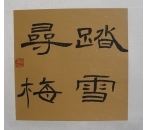 踏雪
尋梅